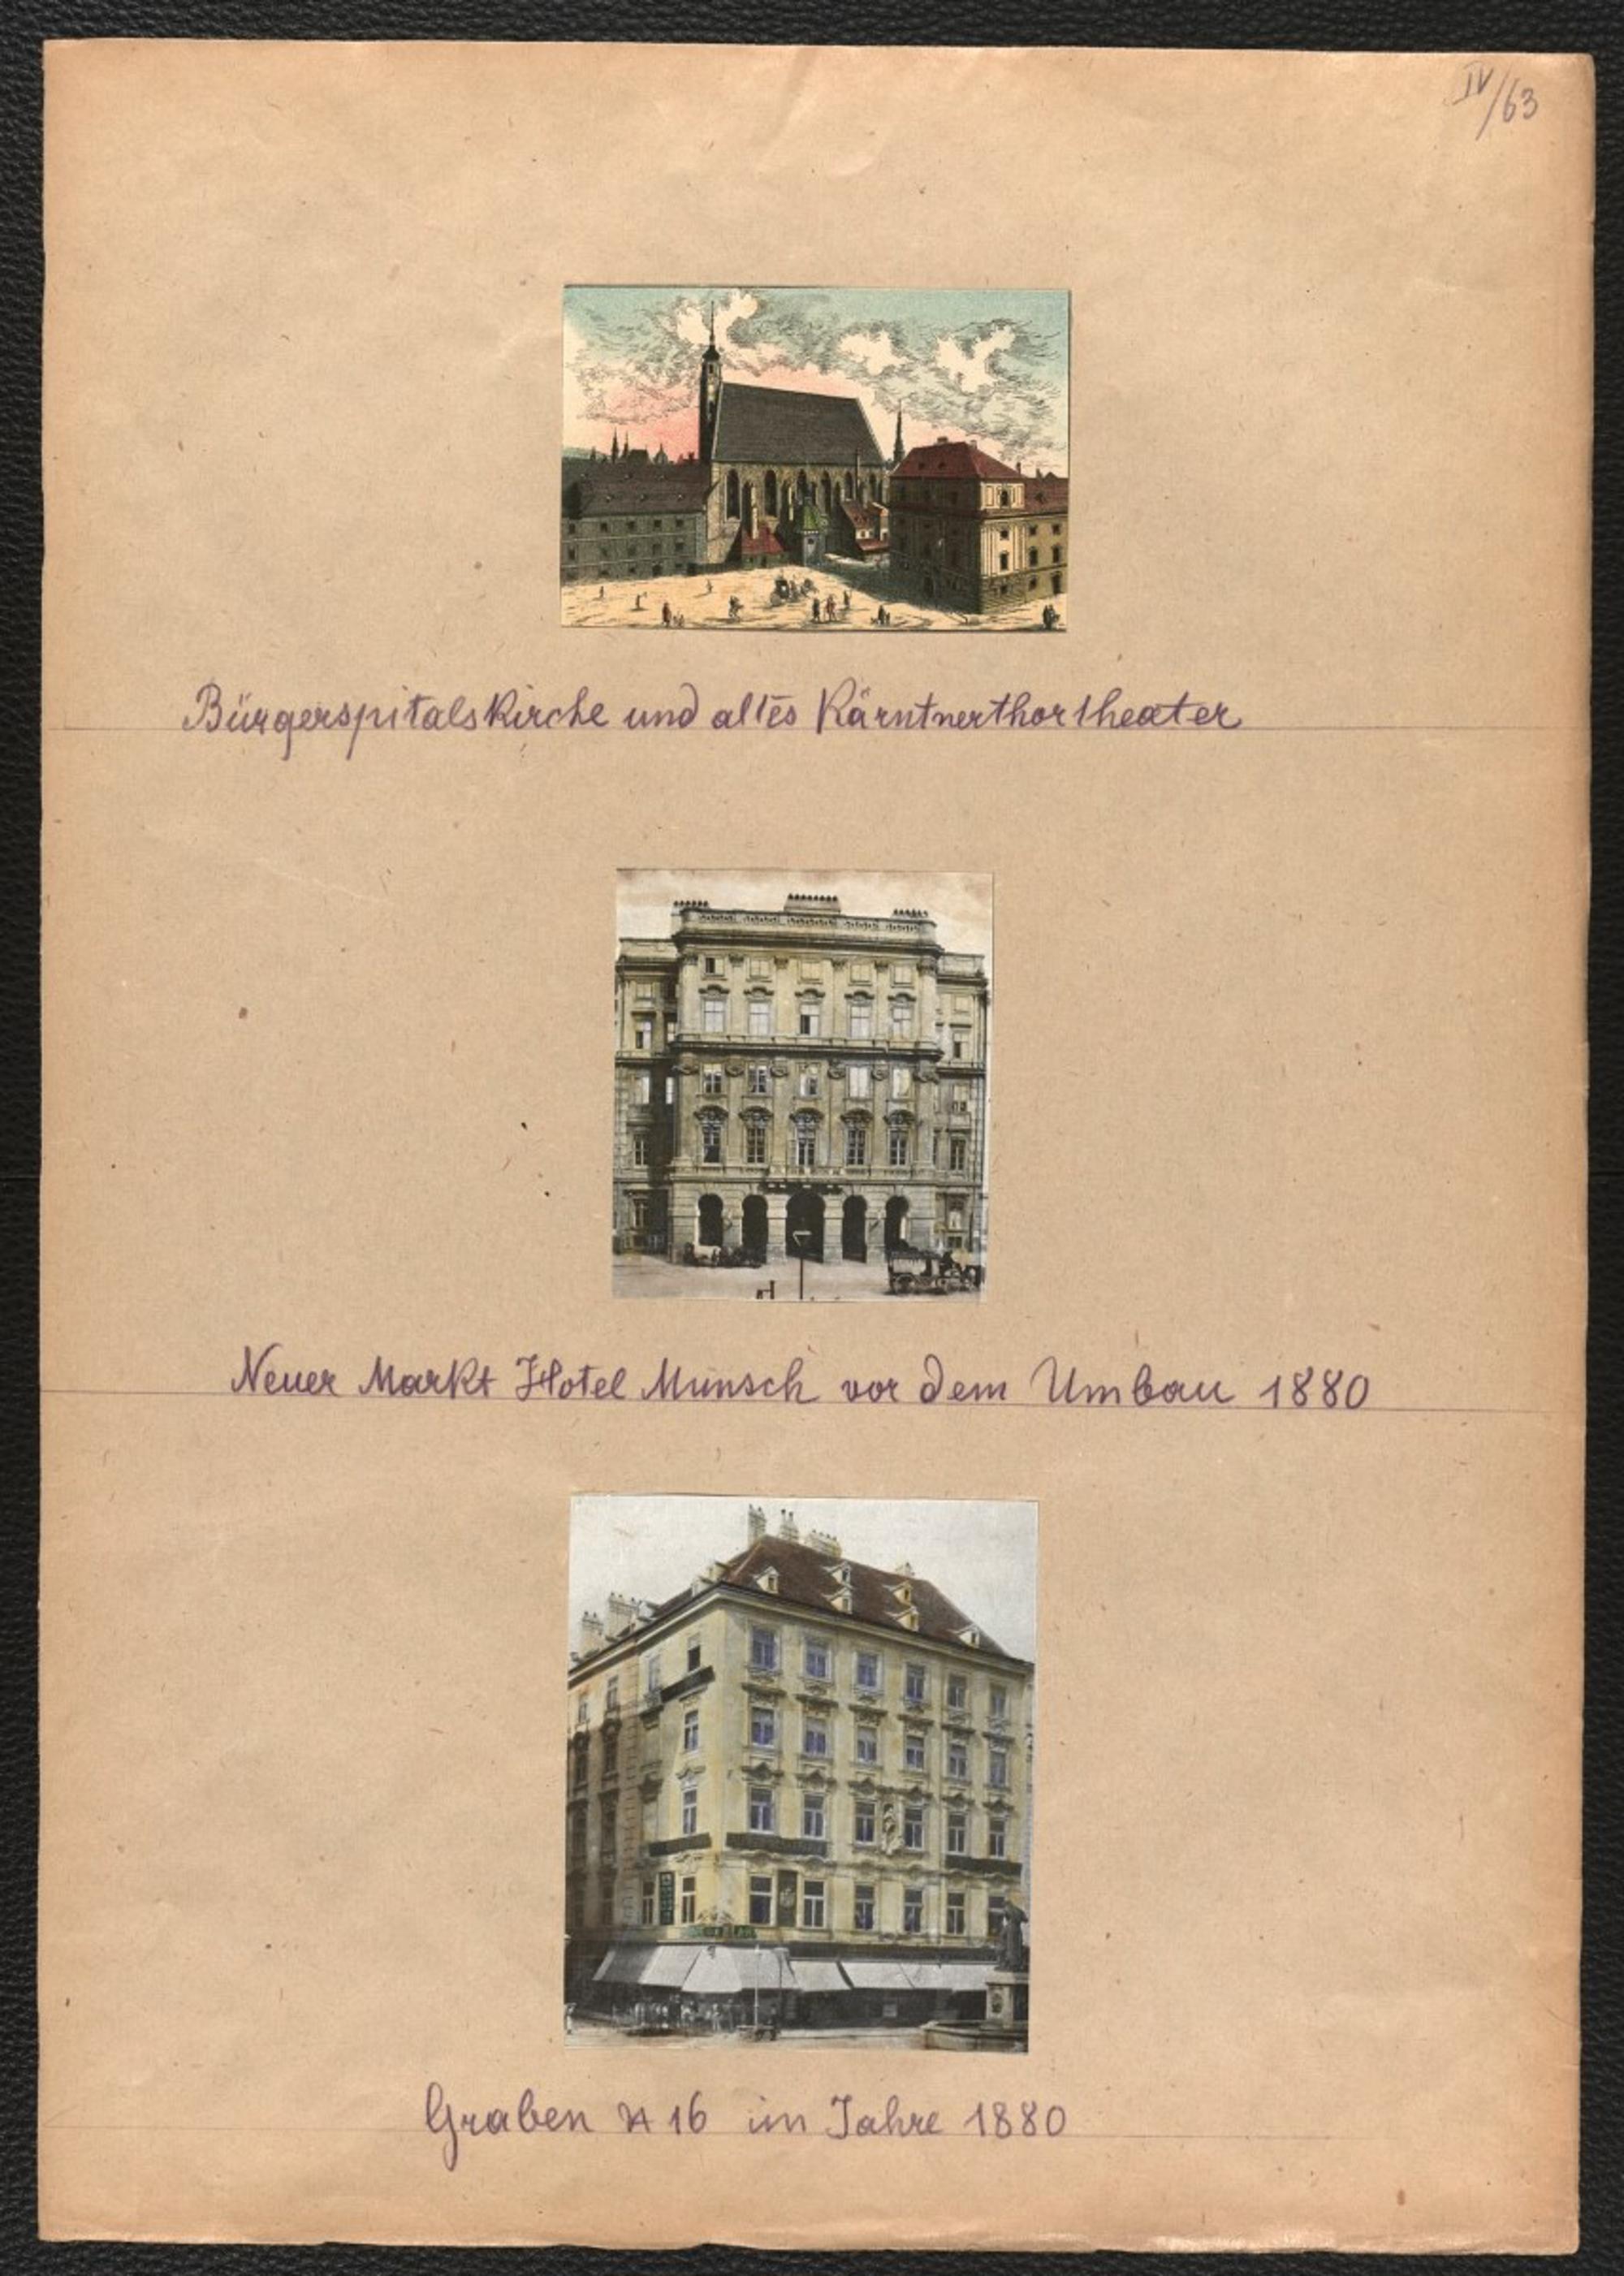 IV/63
Bürgerspitalskirche und altes Kärntnerthortheater
Neuer Markt Hotel Munsch vor dem Umbau 1880
Graben № 16 im Jahre 1880